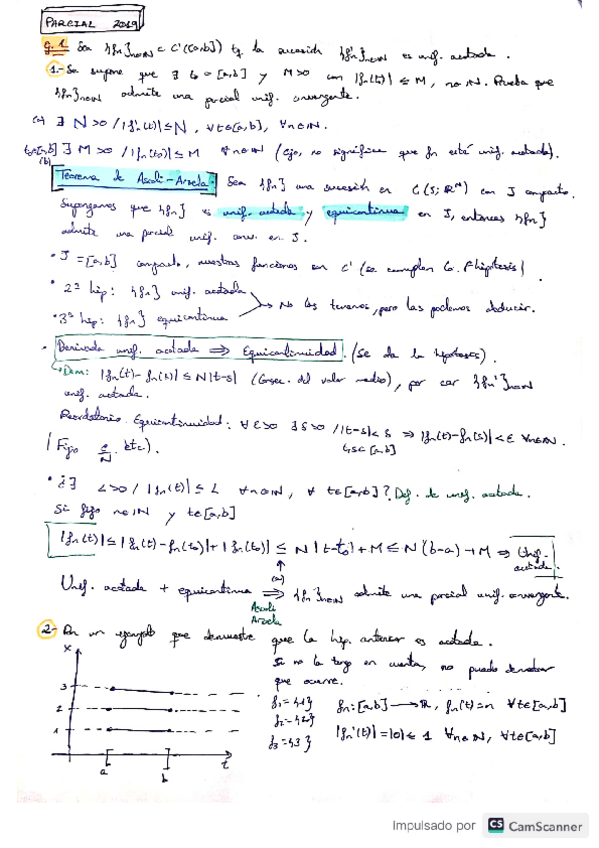 PARCIAL 2019
Ej. 1 Sea {fn}n∈N ⊂ C'([a,b]) tq la sucesión {f'n}n∈N es unif. acotada.
1.- Se supone que ∃ t0 ∈ [a,b] y M>0 con |fn(t0)| ≤ M, n∈N. Prueba que
{fn}n∈N admite una parcial unif. convergente.
(a) ∃ N>0 / |f'n(t)| ≤ N, ∀t∈[a,b], ∀n∈N.
t0∈[a,b] ∃ M>0 / |fn(t0)| ≤ M ∀n∈N (Ojo, no significa que fn esté unif. acotada).
(b)
Teorema de Ascoli-Arzela: Sea {fn} una sucesión en C(J; R^N) con J compacto.
Supongamos que {fn} es unif. acotada y equicontinua en J, entonces {fn}
admite una parcial unif. conv. en J.
· J = [a,b] compacto, nuestras funciones en C'
· 2ª hip: {fn} unif. acotada
· 3ª hip: {fn} equicontinua
No las tenemos, pero las podemos deducir.
· Derivada unif. acotada ⇒ Equicontinuidad. (Se da la hipótesis).
Dem: |fn(t)-fn(s)| ≤ N|t-s| (Consec. del valor medio), por ser {fn'}n∈N
unif. acotada.
Recordatorio. Equicontinuidad: ∀ε>0 ∃δ>0 / |t-s|<δ ⇒ |fn(t)-fn(s)|<ε ∀n∈N.
t,s∈[a,b]
(Fijo ε/N etc).
· ¿∃ L>0 / |fn(t)| ≤ L ∀n∈N, ∀ t∈[a,b]? Def. de unif. acotada.
Si fijo n∈N y t∈[a,b]
|fn(t)| ≤ |fn(t)-fn(t0)| + |fn(t0)| ≤ N|t-t0| + M ≤ N(b-a) + M ⇒ Unif. acotada.
(a)
Unif. acotada + equicontinua ⇒ {fn}n∈N admite una parcial unif. convergente.
Ascoli
Arzela
2- Da un ejemplo que demuestre que la hip. anterior es
Si no la tengo en cuenta, no puedo demostrar
que ocurre.
x
3
2
1
a
b
t
f1={1}
f2={2}
f3={3}
fn:[a,b] → R, fn(t)=n ∀t∈[a,b]
|fn'(t)| = |0| ≤ 1 ∀n∈N, ∀t∈[a,b]
Impulsado por CS CamScanner